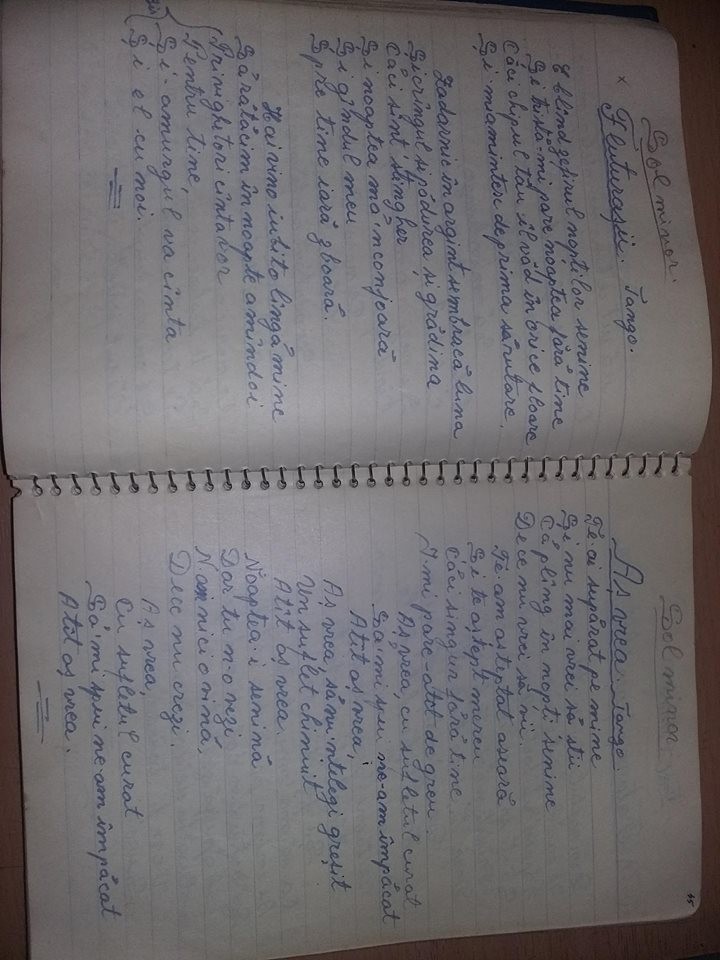 Sol minor.
x Fluturașii. Tango.
E blînd zefirul nopților senine
Și tristă-mi pare noaptea fără tine
Căci chipul tău îl văd în orice floare
Și mi-amintesc de prima sărutare.
Zadarnic în argint se-mbracă luna
Și crîngul și pădurea și grădina
Căci sînt stingher
Și noaptea mă-nconjoară
Și gîndul meu
Spre tine iară zboară.
Hai vino iubito lîngă mine
Să rătăcim în noapte amîndoi
Privighetori cînta-vor
Pentru tine,
Și-amurgul va cînta
Și el cu noi.
Sol minor
45
Aș vrea. Tango.
Te-ai supărat pe mine
Și nu mai vrei să știi
Că plîng în nopți senine
De ce nu vrei să vii.
Te-am așteptat aseară
Și te aștept mereu
Căci singur fără tine
Î-mi pare-atît de greu.
Aș vrea cu sufletul curat
Să-mi spui ne-am împăcat
Atît aș vrea,
Aș vrea să nu-nțelegi greșit
Un suflet chinuit
Atît aș vrea.
Noaptea-i senină
Dar tu n-o vezi
N-am nici o vină,
De ce nu crezi.
Aș vrea,
Cu sufletul curat
Să-mi spui ne-am împăcat
Atît aș vrea.